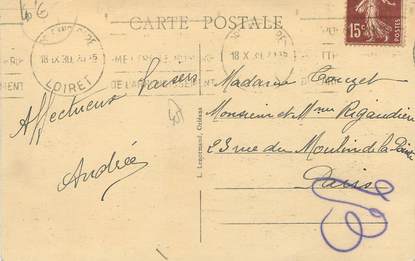 CARTE POSTALE
15c
POSTES
18 IX 30
LOIRET
18 X 30
Affectueux baisers
Andrée
L. Lenormand, Orléans
Madame Touzet
Monsieur et Mme Rigaudier
23 rue du Moulin de la Pointe
Paris